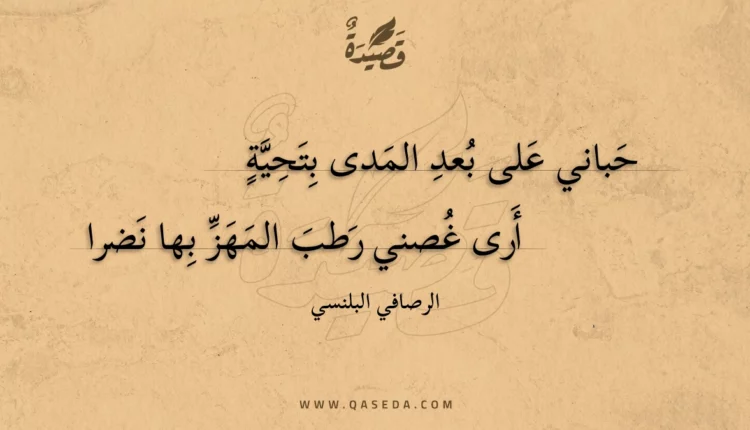 قَصِيْدَةٌ
حَباني عَلى بُعدِ المَدى بِتَحِيَّةٍ
أَرى غُصني رَطبَ المَهَزِّ بِها نَضرا
الرصافي البلنسي
WWW.QASEDA.COM